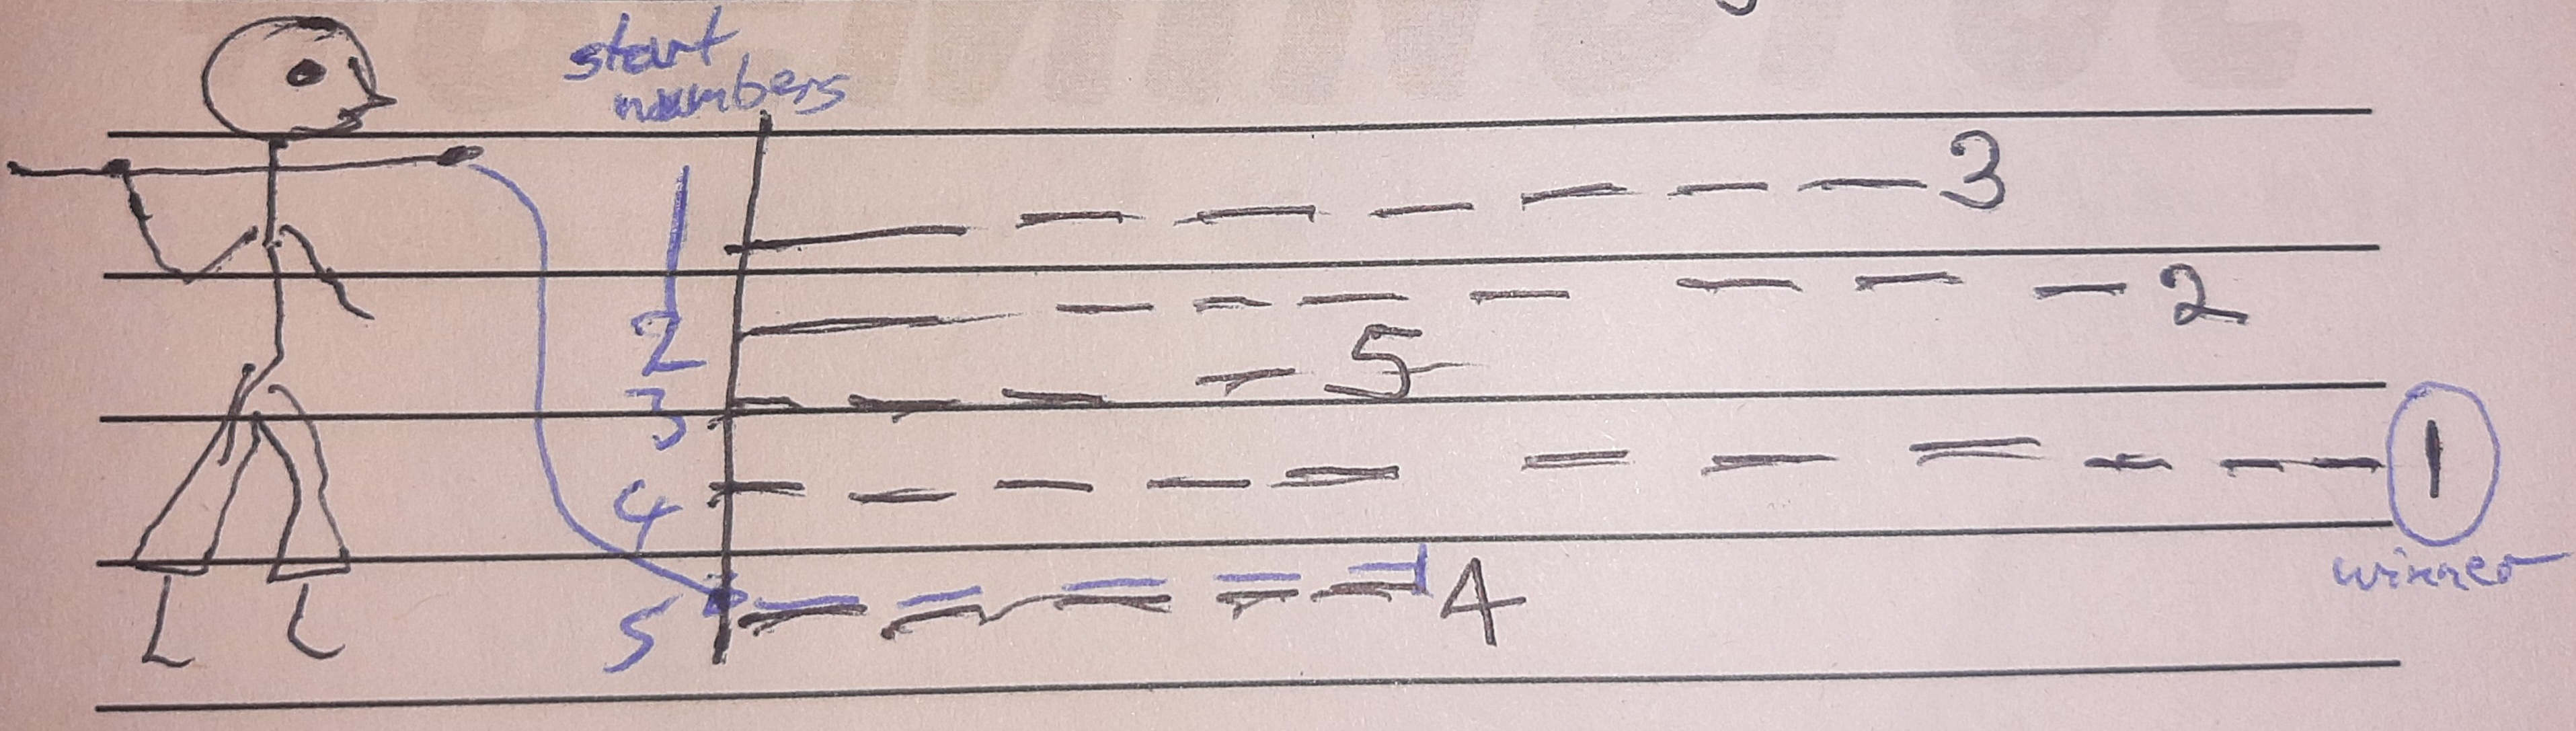 start
numbers
1 3
2 2
3 5
4 1
winner
5 4